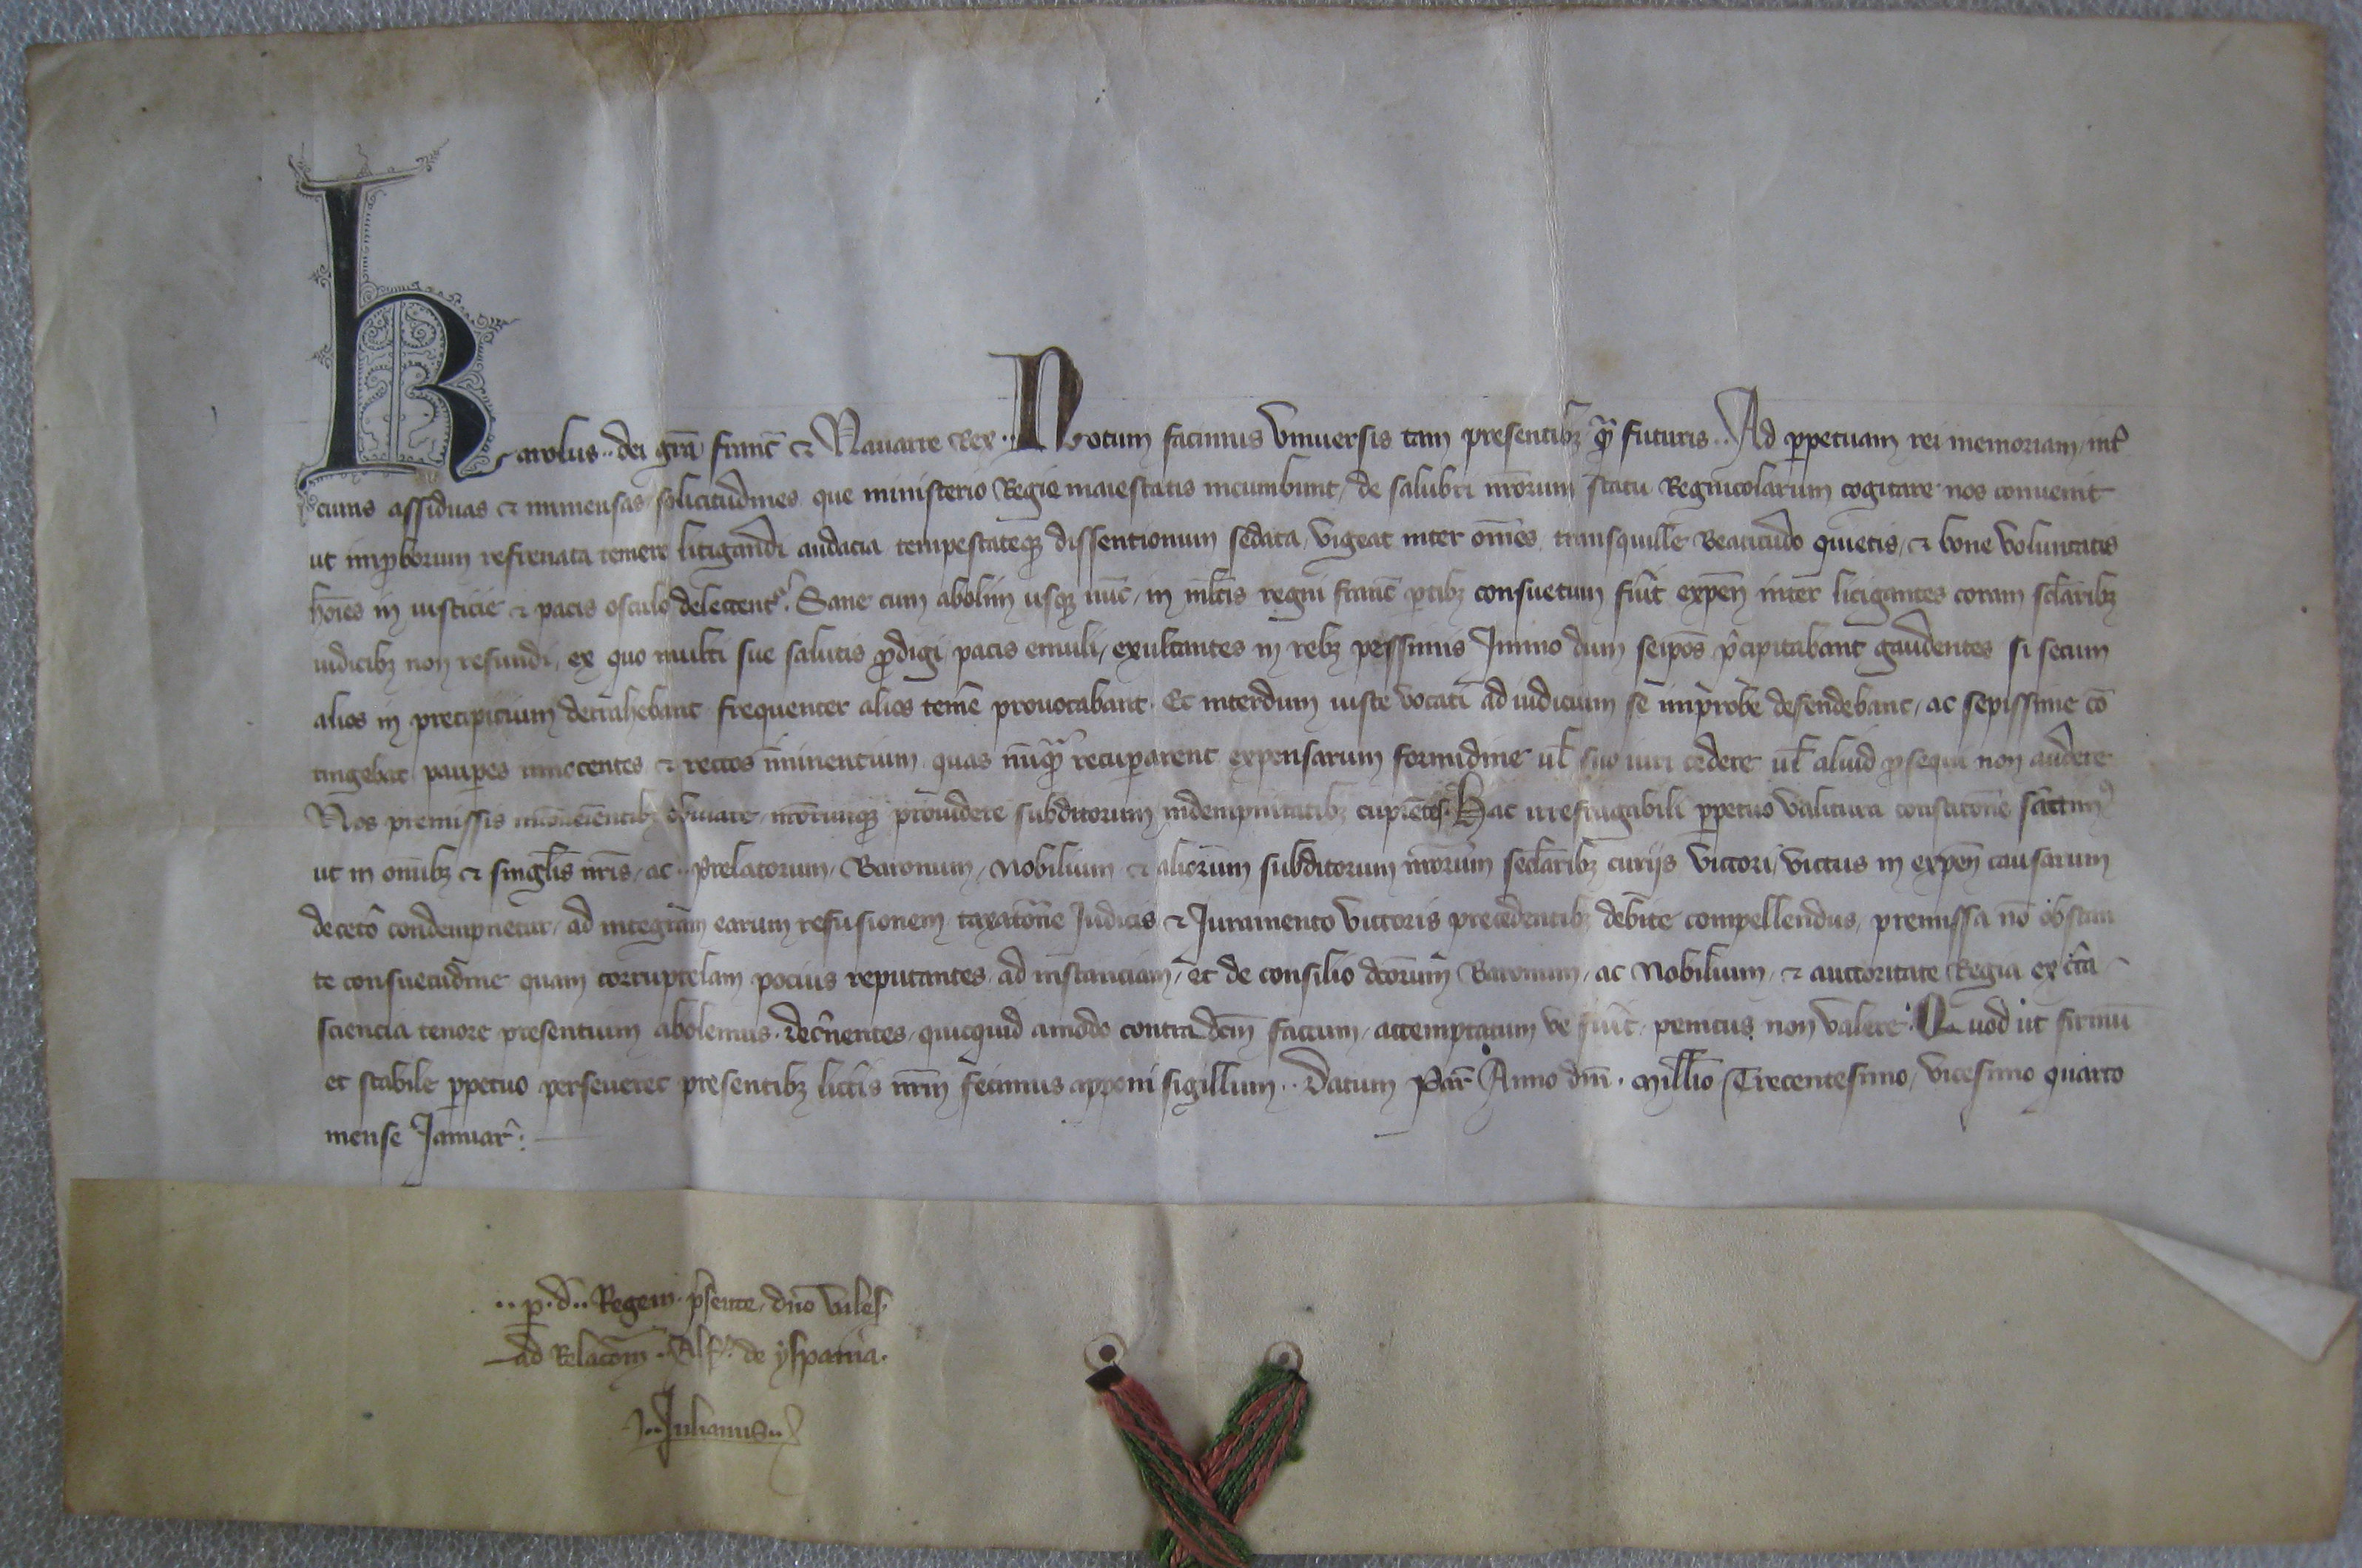 Karolus .. dei grã franc̃ ⁊ Nauarre Rex .. Notum facimus Vniuersis tam presentibꝫ ꝙ̃ futuris .. Ad ꝑpetuam rei memoriam / int̾
curas assiduas ⁊ inmensas solicitudines que ministerio Regie maiestatis incumbunt / de salubri nr̃orum statu Regnicolarum cogitare nos conuenit
ut imꝓborum refrenata temere litigandi audacia tempestateqꝫ dissentionum sedata / vigeat inter om̃es tranquille Beatitudo quietis / ⁊ bone voluntatis
hoĩes in iusticie ⁊ pacis osculo delectent᷑ . Sane cum abolim usqꝫ nũc / in ml̃tis regni franc̃ ꝑtibꝫ consuetum fũit expeñ inter litigantes coram sc̃laribꝫ
iudicibꝫ non refundi / ex quo multi sue salutis ꝓdigi / pacis emuli / exultantes in rebꝫ pessimis Immo dum seip̃os p̃cipitabant gaudentes si secum
alios in precipitium detrahebant frequenter alios tem̃e prouocabant . Et interdum iuste vocati ad iudicium se improbe defendebant / ac sepissime cõ
tingebat pauꝑes innocentes ⁊ rectos iminentium / quas nũqꝫ recuꝑarent expensarum formidine ul̃ suo iuri cedere ul̃ aliud ꝓsequi non audere
Nos premissis incõueñientibꝫ obuiare / nr̃orumqꝫ prouidere subditorum indempnitatibꝫ cupiẽtes . Hac irrefragabili ꝑpetuo valitura constitõne sãccimꝰ
ut in om̃ibꝫ ⁊ singl̃is nr̃is / ac .. Prelatorum / Baronum / Nobilium ⁊ aliorum subditorum nr̃orum sec̃laribꝫ curijs victori / victus in expeñ causarum
decet̾o condempnetur / ad integram earum refusionem taxatõne Iudicis ⁊ Iuramento victoris precedentibꝫ debite compellendus / premissa nõ obstan
te consuetudine quam corruptelam pocius reputantes / ad instanciam / et de consilio dc̃orum Baronum / ac Nobilium / ⁊ auctoritate Regia ex c̃ta
sciencia tenore presentium abolemus . dec̃nentes / quicquid amodo contra dc̃m factum / attemptatum ve fũit / penitus non valere . Quod ut firmũ
et stabile ꝑpetuo perseueret presentibꝫ litt̃is nr̃m fecimus apponi sigillum .. Datum Par̃ Anno dñi . Mill̃io Trecentesimo / vicesimo quarto
mense Ianuar̃ .
.. ꝑ . d .. Regem . p̃sente . dño vales̃ .
ad Relacõm .. Alf̃ . de yspania .
.. Iulianus ..